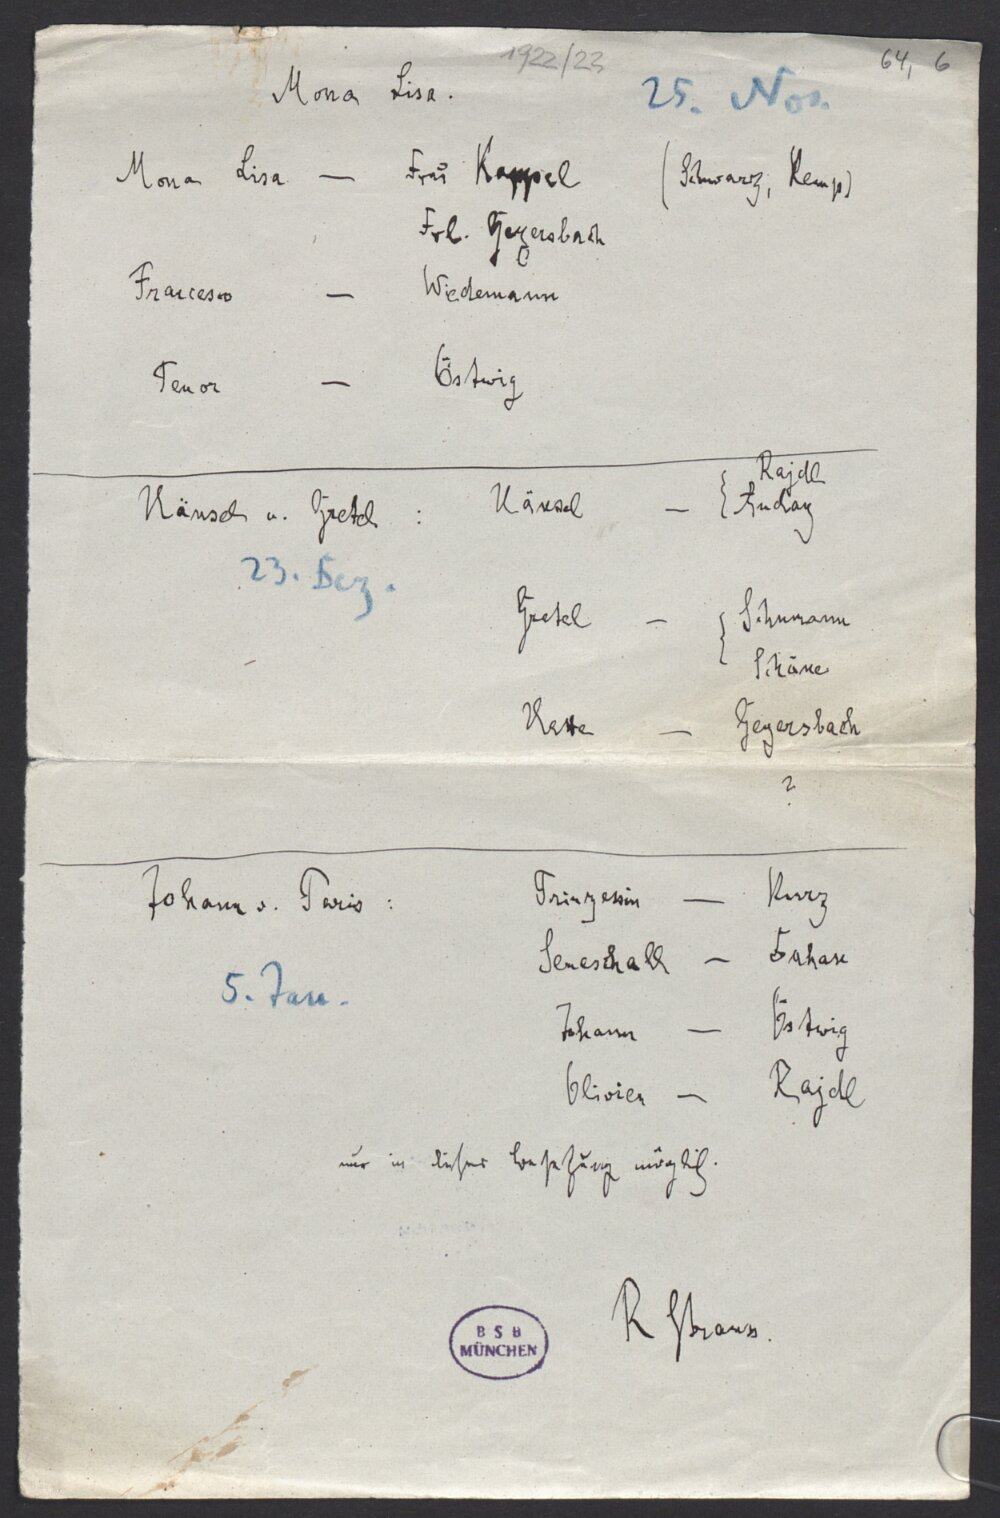 1922/23
64, 6
Mona Lisa. 25. Nov.
Mona Lisa — Frau Kappel (Schwarz, Kemp)
Frl. Geyersbach
Francesco — Wiedemann
Tenor — Östvig
Hänsel u. Gretel : Hänsel — { Rajdl
Anday
23. Dez.
Gretel — { Schumann
Schöne
Hexe — Geyersbach
?
Johann v. Paris : Prinzessin — Kurz
Seneschall — Duhan
5. Jan.
Johann — Östvig
Olivier — Rajdl
nur in dieser Besetzung möglich.
R Strauss.
BSB
MÜNCHEN